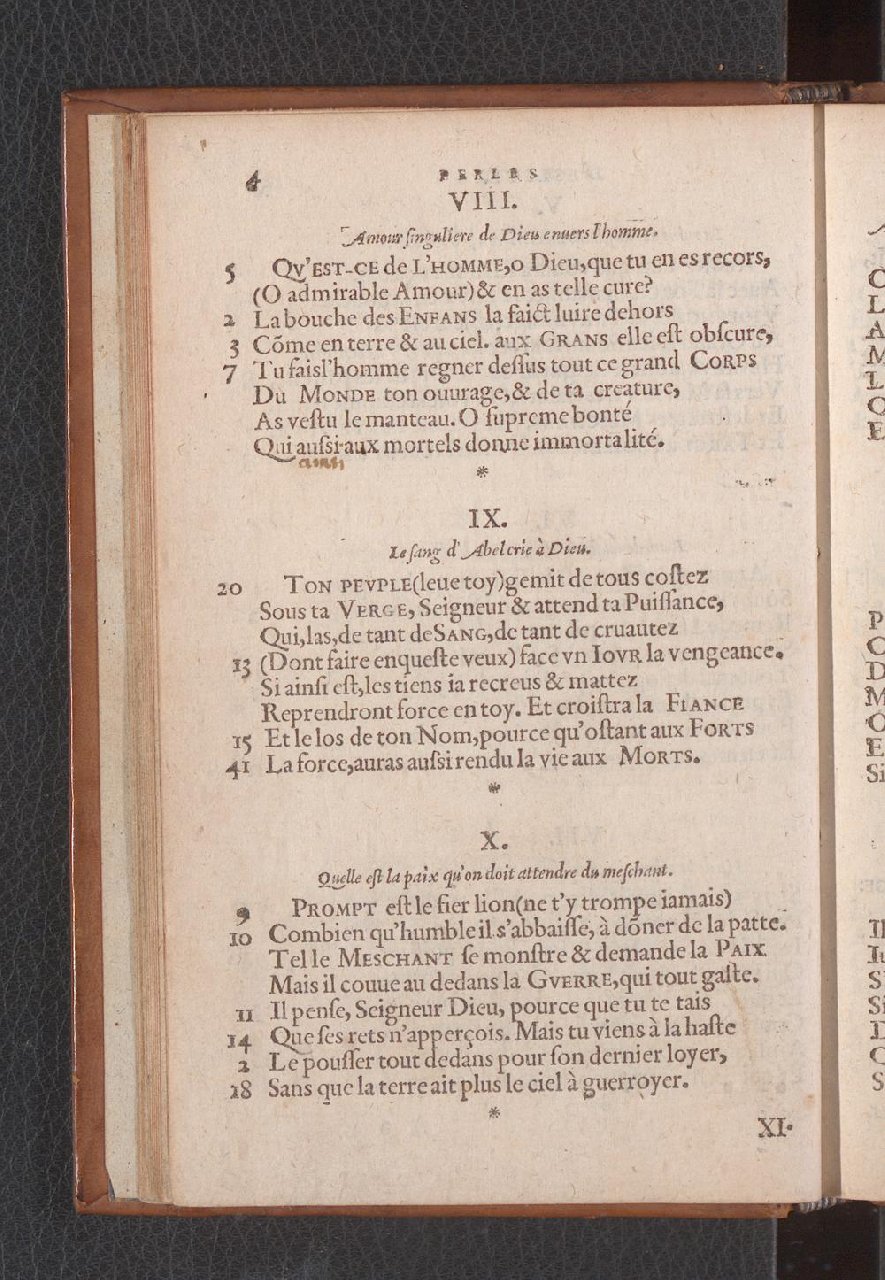 4 PERLES
VIII.
Amour singuliere de Dieu enuers l'homme.
5 QV'EST-CE de L'HOMME, o Dieu, que tu en es recors,
(O admirable Amour) & en as telle cure?
2 La bouche des ENFANS la faict luire dehors
3 Cõme en terre & au ciel. aux GRANS elle est obscure,
7 Tu fais l'homme regner dessus tout ce grand CORPS
Du MONDE ton ouurage, & de ta creature,
As vestu le manteau. O supreme bonté
Qui aussi aux mortels donne immortalité.
ainsi
*
IX.
Le sang d'Abel crie à Dieu.
20 TON PEVPLE (leue toy) gemit de tous costez
Sous ta VERGE, Seigneur & attend ta Puissance,
Qui, las, de tant de SANG, de tant de cruautez
13 (Dont faire enqueste veux) face vn IOVR la vengeance.
Si ainsi est, les tiens ia recreus & mattez
Reprendront force en toy. Et croistra la FIANCE
15 Et le los de ton Nom, pource qu'ostant aux FORTS
41 La force, auras aussi rendu la vie aux MORTS.
*
X.
Quelle est la paix qu'on doit attendre du meschant.
9 PROMPT est le fier lion (ne t'y trompe iamais)
10 Combien qu'humble il s'abbaisse, à dõner de la patte.
Tel le MESCHANT se monstre & demande la PAIX
Mais il couue au dedans la GVERRE, qui tout gaste.
11 Il pense, Seigneur Dieu, pource que tu te tais
14 Que ses rets n'apperçois. Mais tu viens à la haste
2 Le pousser tout dedans pour son dernier loyer,
18 Sans que la terre ait plus le ciel à guerroyer.
*
XI.